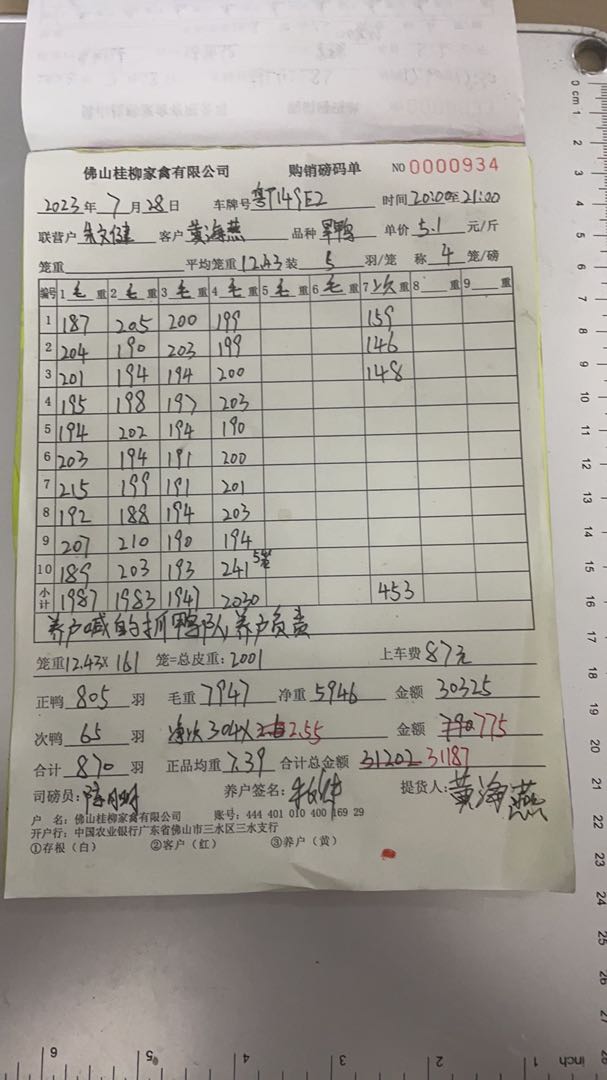 佛山桂柳家禽有限公司 购销磅码单 NO 0000934
2023年 7月 28日 车牌号 粤T149E2 时间 20:00至21:00
联营户 朱文健 客户 黄海燕 品种 单价 5.1 元/斤
笼重 平均笼重 12.43 装 5 羽/笼 称 4 笼/磅
编号 1 毛 重 2 毛 重 3 毛 重 4 毛 重 5 毛 重 6 毛 重 7 次 重 8 重 9 重
1 187 205 200 199 159
2 204 190 203 199 146
3 201 194 194 200 148
4 195 198 197 203
5 194 202 194 190
6 203 194 191 200
7 215 199 191 201
8 192 188 194 203
9 207 210 190 194
10 189 203 193 241 5笼
小计 1987 1983 1947 2030 453
养户喊自的抓鸭队,养户负责
笼重 12.43 X 161 笼=总皮重: 2001 上车费 87元
正鸭 805 羽 毛重 7947 净重 5946 金额 30325
次鸭 65 羽 净次 304 X 2.55 金额 775
合计 870 羽 正品均重 7.39 合计总金额 31202 31187
司磅员: 养户签名: 提货人: 黄海燕
户 名: 佛山桂柳家禽有限公司 账号: 444 401 010 400 169 29
开户行: 中国农业银行广东省佛山市三水区三水支行
①存根(白) ②客户(红) ③养户(黄)
0 cm 1 2 3 4 5 6 7 8 9 10 11 12 13 14 15 16 17 18 19 20 21 22 23 24 25
6 5 4 3 2 1 inch